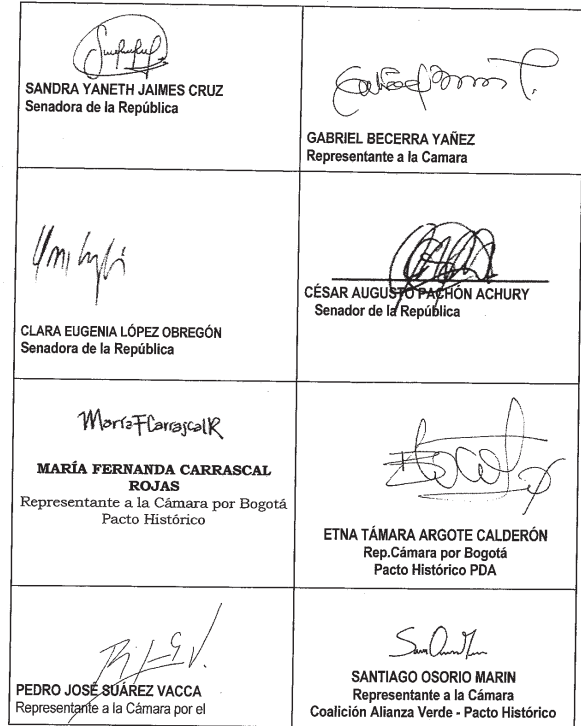 SANDRA YANETH JAIMES CRUZ
Senadora de la República
GABRIEL BECERRA YAÑEZ
Representante a la Camara
CLARA EUGENIA LÓPEZ OBREGÓN
Senadora de la República
CÉSAR AUGUSTO PACHÓN ACHURY
Senador de la República
MaríaFCarrascalR
MARÍA FERNANDA CARRASCAL
ROJAS
Representante a la Cámara por Bogotá
Pacto Histórico
ETNA TÁMARA ARGOTE CALDERÓN
Rep.Cámara por Bogotá
Pacto Histórico PDA
PEDRO JOSÉ SUÁREZ VACCA
Representante a la Cámara por el
SANTIAGO OSORIO MARIN
Representante a la Cámara
Coalición Alianza Verde - Pacto Histórico